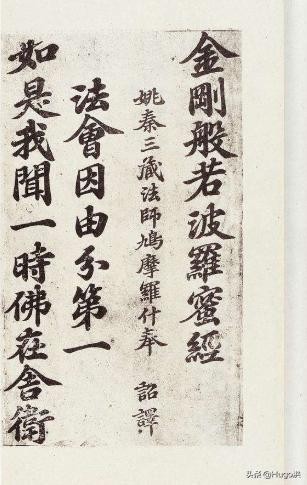 金剛般若波羅蜜經
姚秦三藏法師鳩摩羅什奉 詔譯
法會因由分第一
如是我聞一時佛在舍衛
头条 @Hugo洪